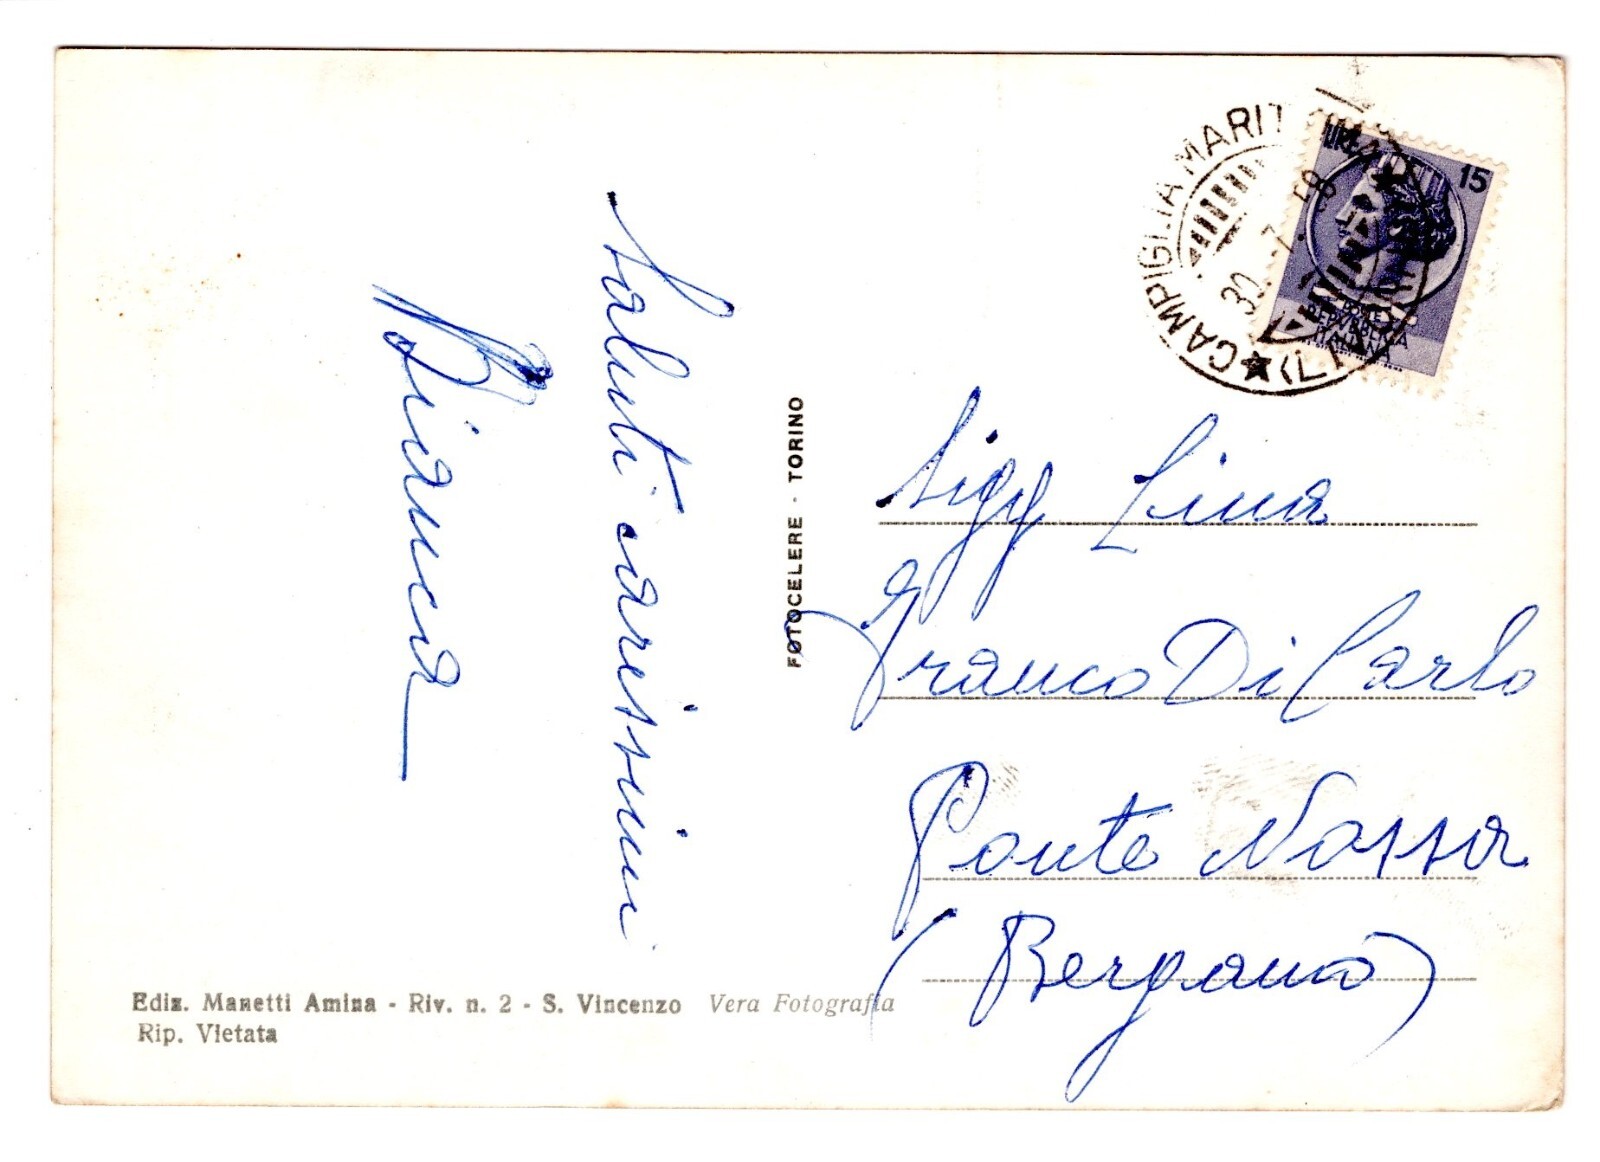 Saluti carissimi
Bianca
FOTOCELERE - TORINO
CAMPIGLIA MARITTIMA (LIVORNO)
30.7.58
LIRE 15
POSTE
REPVBBLICA
ITALIANA
Sigg Lina
e Franco Di Carlo
Ponte Nossa
(Bergamo)
Ediz. Manetti Amina - Riv. n. 2 - S. Vincenzo Vera Fotografia
Rip. Vietata